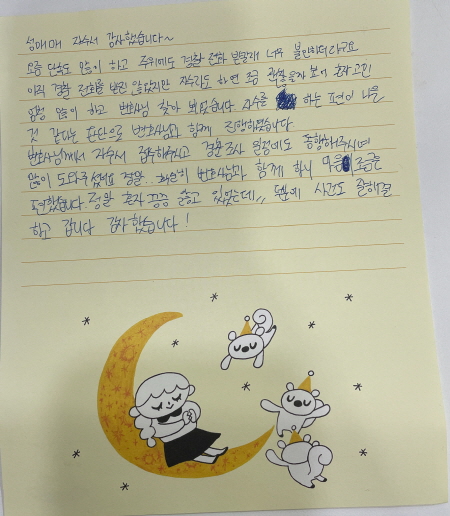 성매매 자수서 감사했습니다~
요즘 단속도 많이 하고 주위에도 경찰 전화 받았길래 너무 불안하더라구요
아직 경찰 전화를 받진 않았지만 자수라도 하면 조금 괜찮을까 보여 혼자 고민
많이 하고 변호사님 찾아 뵈었습니다 자수를 하는 편이 나을
것 같다는 판단으로 변호사님과 함께 진행하였습니다
변호사님께서 자수서 접수해주시고 경찰조사 일정에도 동행해주시며
많이 도와주셨어요 정말.. 확실히 변호사님과 함께 하니 마음이 조금은
편했습니다. 정말 혼자 끙끙 앓고 있었는데,, 덕분에 사건도 잘해결
하고 갑니다 감사했습니다!